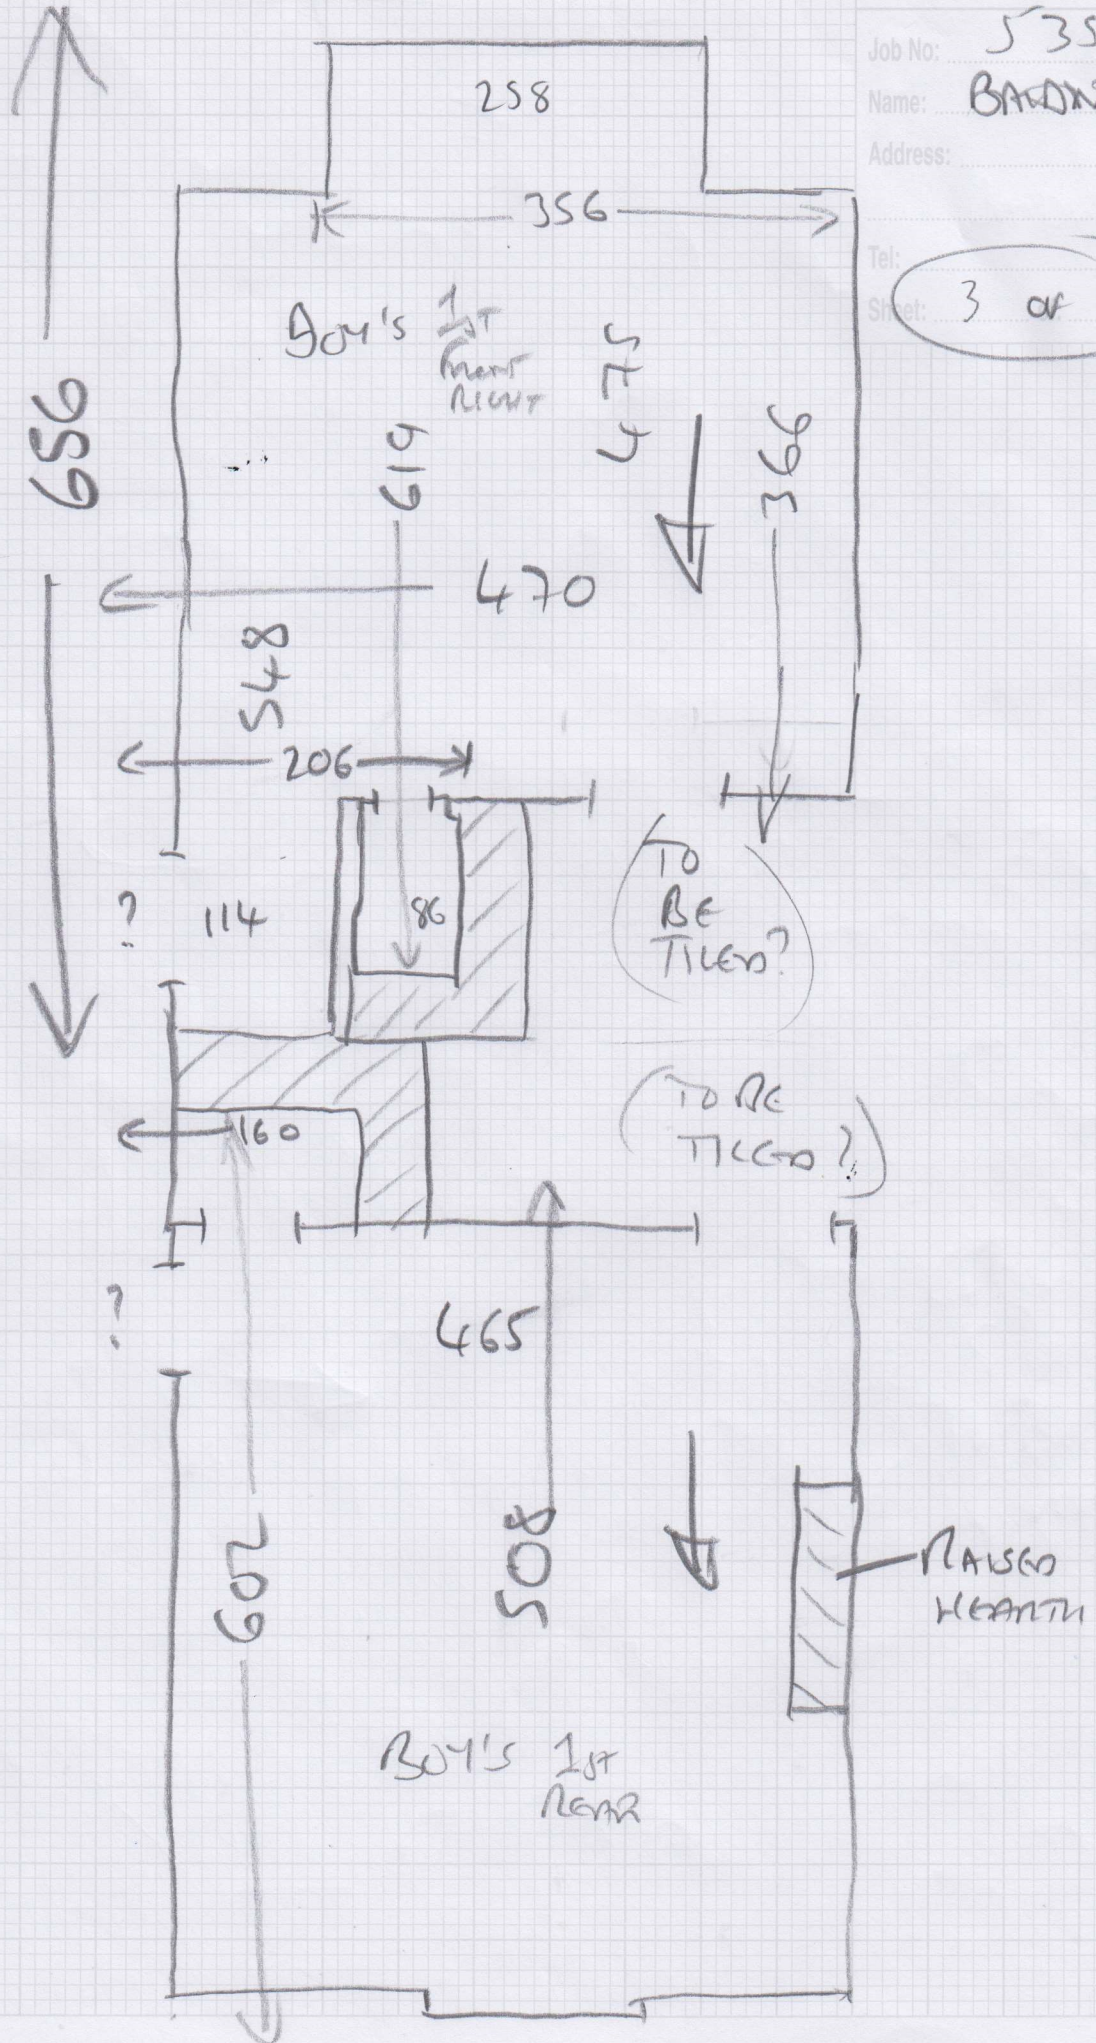 Job No: 535
Name:
Address:
Tel:
Sheet: 3 of
258
356
BOY'S 1ST
FRONT
RIGHT
475
619
366
656
470
548
206
?
114
86
TO
BE
TILED?
(TO BE
TILED?)
160
?
465
508
602
RAISED
HEARTH
BOY'S 1ST
REAR